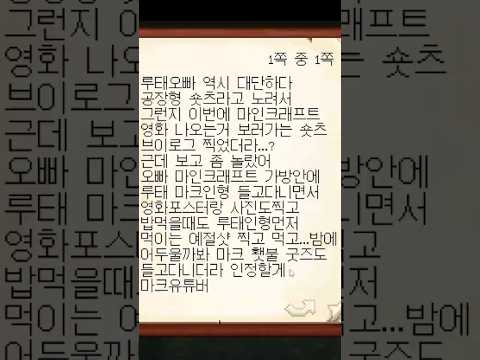 1쪽 중 1쪽
루태오빠 역시 대단하다
공장형 숏츠라고 노려서
그런지 이번에 마인크래프트
영화 나오는거 보러가는 숏츠
브이로그 찍었더라...?
근데 보고 좀 놀랐어
오빠 마인크래프트 가방안에
루태 마크인형 들고다니면서
영화포스터랑 사진도찍고
밥먹을때도 루태인형먼저
먹이는 예절샷 찍고 먹고...밤에
어두울까봐 마크 횃불 굿즈도
들고다니더라 인정할게
마크유튜버